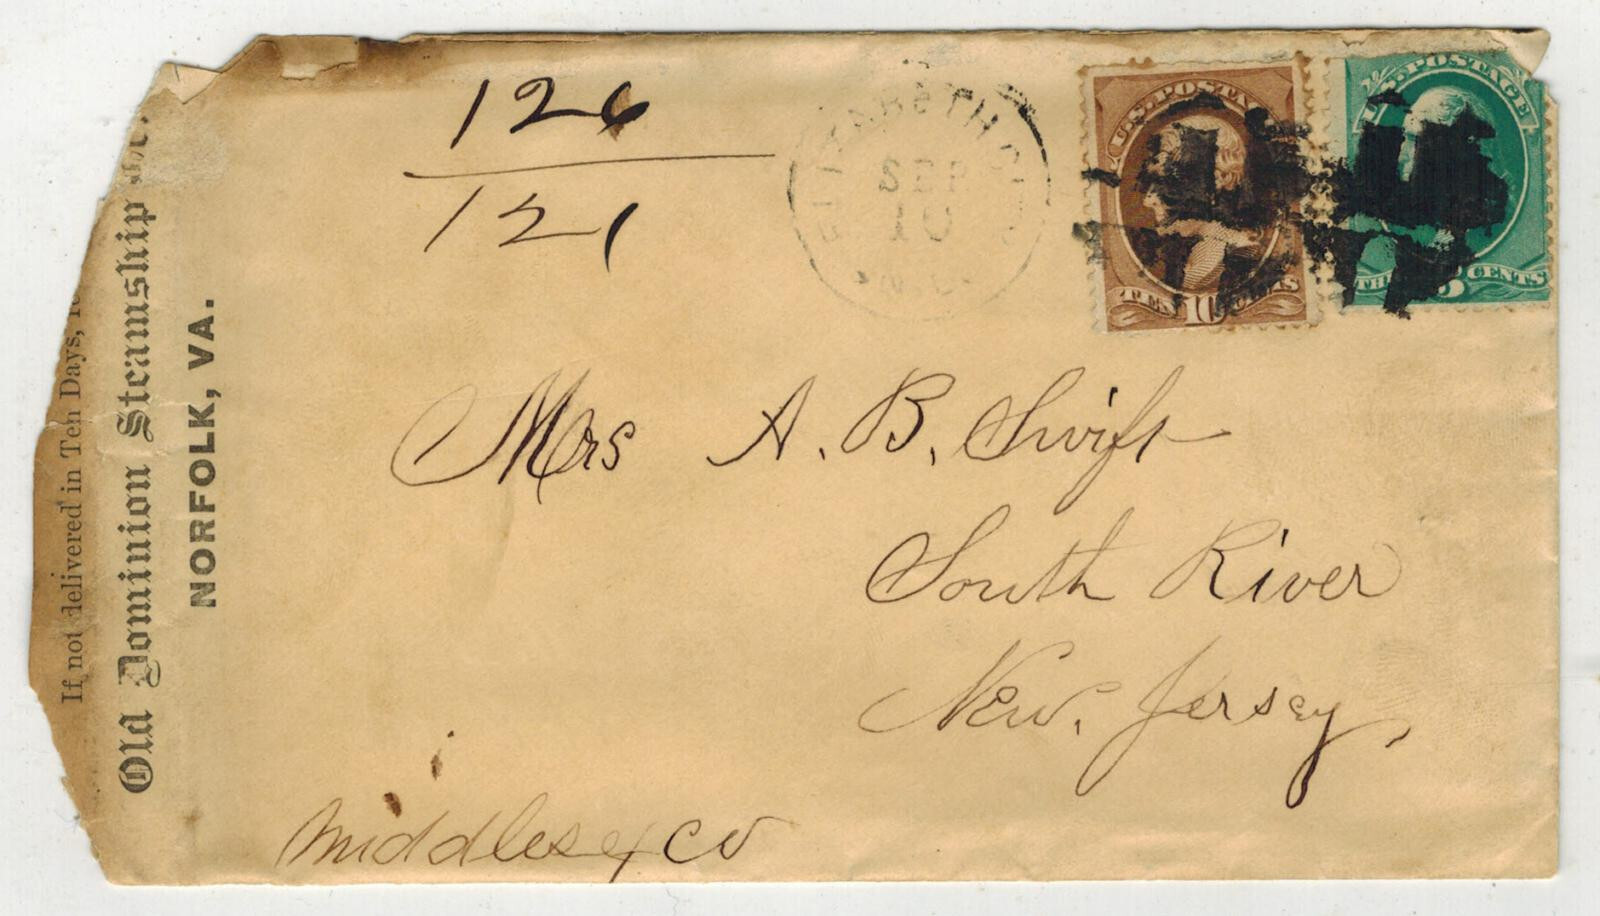 If not delivered in Ten Days,
Old Dominion Steamship
NORFOLK, VA.
126
121
ELIZABETH CITY
SEP
10
N.C.
U.S. POSTAGE
TEN 10 CENTS
U.S. POSTAGE
THREE 3 CENTS
Mrs A. B. Swift
South River
New. Jersey,
Middlesex Co